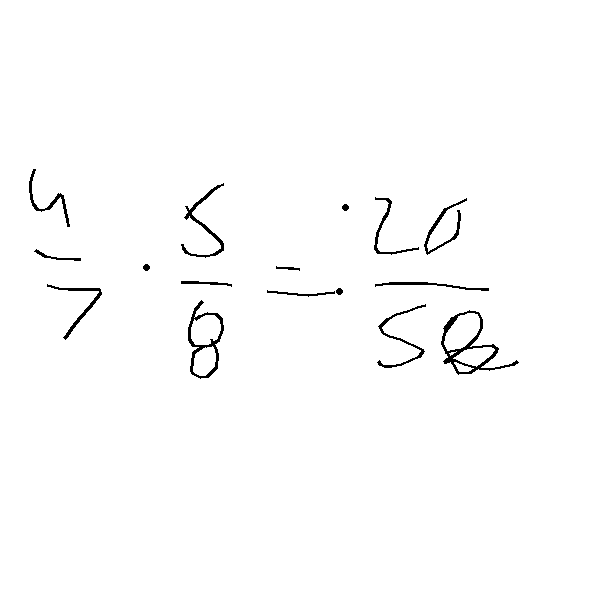 4/7 · 5/8 = 20/58